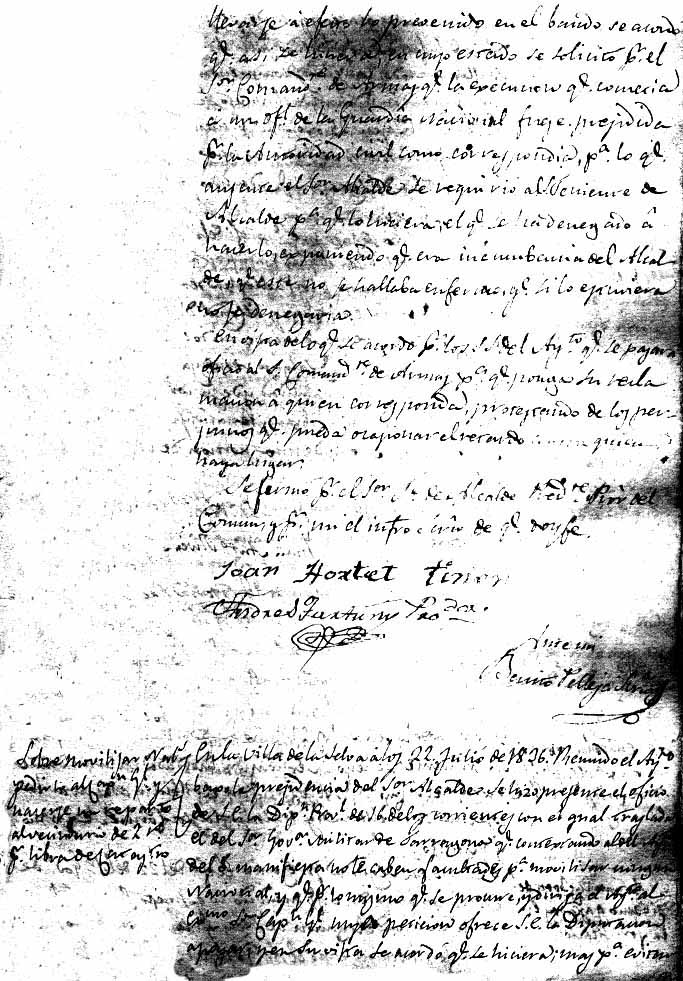 llevarse á efecto lo prevenido en el bando se acordó
qe. asi se hiciera, en cuyo estado se solicitó pr. el
Sor. Comandte. de Armas qe. la execucion qe. comecia
á un ofl. de la Guardia Nacional fuese presidida
pr. la Autoridad civil como correspondia, pa. lo qe.
ausente el Sor. Alcalde se requirió al Teniente de
Alcalde pa. qe. lo hiciera, el qe. se ha denegado á
hacerlo, exponiendo qe. era incumbencia del Alcal
de, qe. este no se hallaba enfermo, qe. si lo estuviera
no se denegaria.
En vista de lo qe. se acordó pr. los SS. del Aynto. qe. se pasara
oficio al Sr. Comandte. de Armas pa. qe. ponga su recla
macion á quien corresponda, protestando de los per-
juicios qe. pueda ocasionar el retardo contra quien
haya lugar.
Se firmó pr. el Sor. de Alcalde Pror. del
Comun y pr. mi el infro. Srio. de qe. doy fe.
Joan Hortet tinen
Andreu Furtuny Procdor.
Ante mi
Benito Pelleja Srio.
Sobre movilisar Naty.
pedir al Capn. Gl. y
hacerse un reparto
al vecindario de 2 rs.
pr. libra de Catastro
En la Villa de la Selva á los 22 Julio de 1836. Reunido el Ayto.
bajo la presidencia del Sor. Alcalde se hizo presente el oficio
de S.E. la Dipn. Provl. de 16 de los corrientes con el qual traslada
el del Sor. Govr. Militar de Tarragona qe. contestando al
del 8 manifiesta no le caben facultades pa. movilisar ningun
Nacional, y qe. pr. lo mismo qe. se procure dirigirse al
Sr. Capn. Gl. cuya peticion ofrece S.E. la Diputacion
apoyar; y en su vista se acordó qe. se hiciera; mas pa. evitar